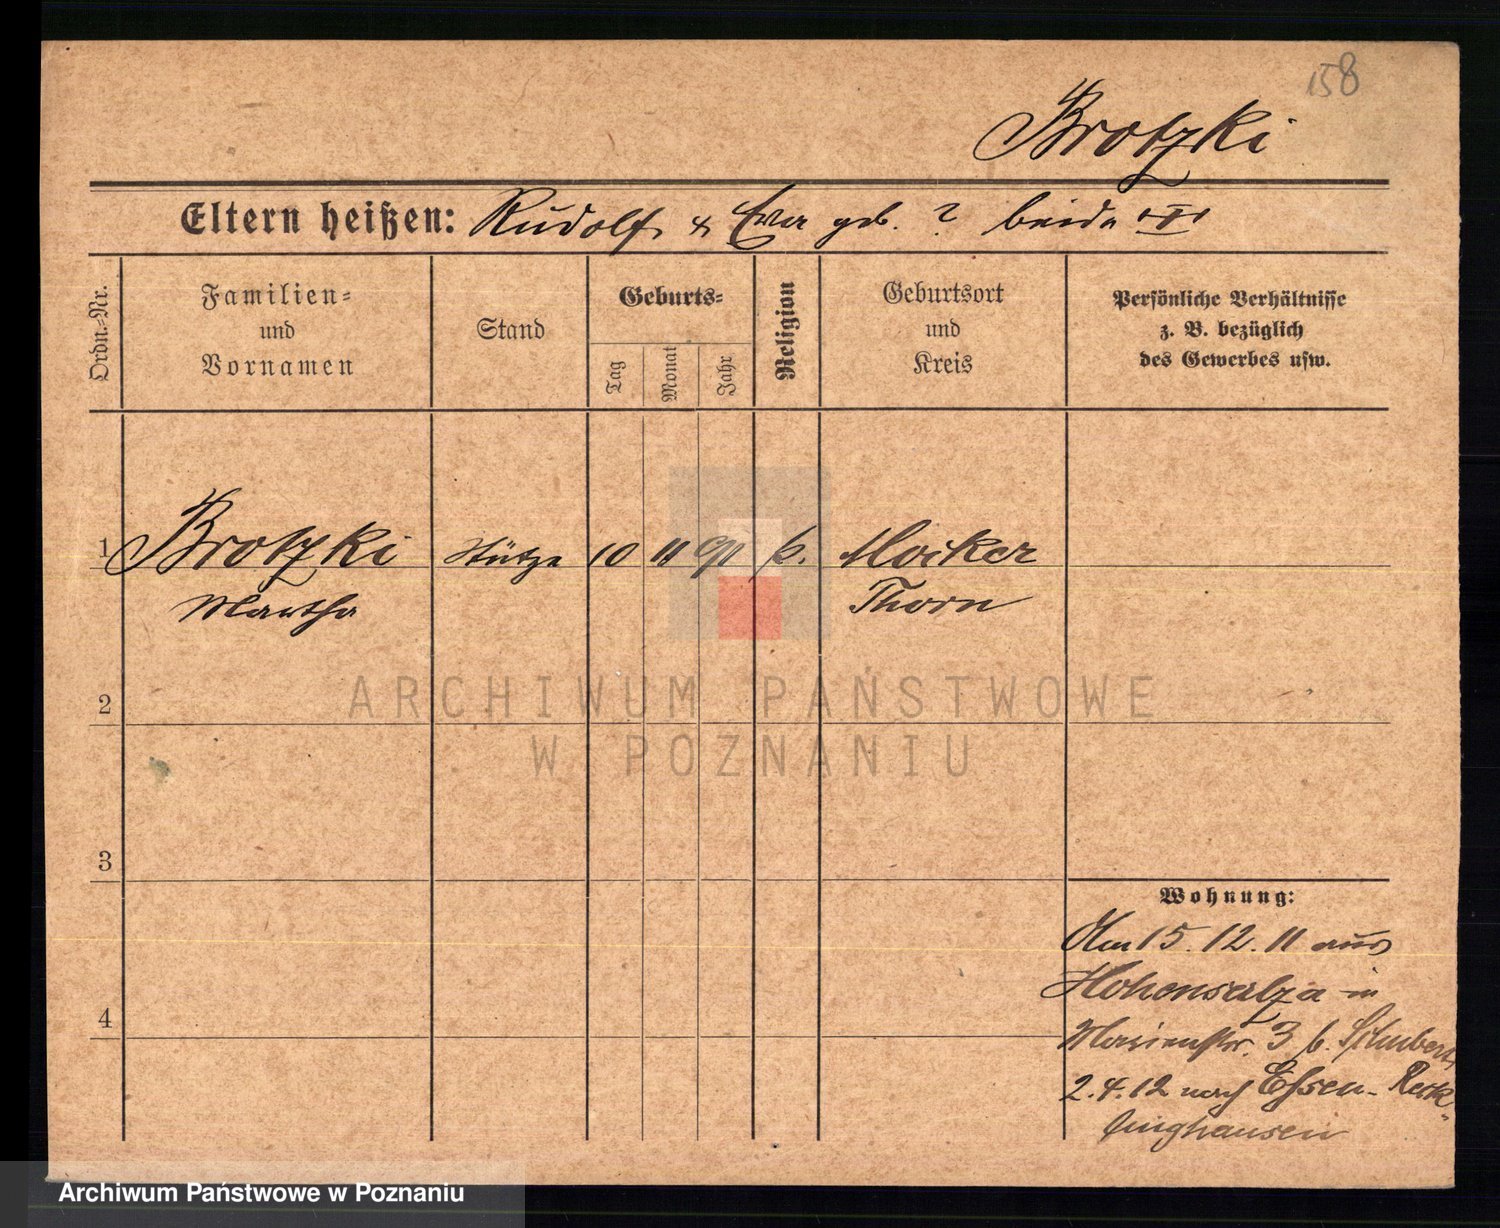 158
Brotzki
Eltern heißen: Rudolf & Eva geb. ? beide
Ordn.-Nr.
Familien-
und
Vornamen
Stand
Geburts-
Tag
Monat
Jahr
Religion
Geburtsort
und
Kreis
Persönliche Verhältnisse
z. B. bezüglich
des Gewerbes usw.
1 Brotzki Stütze 10 11 91 k. Mocker
Martha Thorn
2
3
4
Wohnung:
Am 15. 12. 11 aus
Hohensalza in
Marienstr. 3 b. Schubert
2. 4. 12 nach Essen - Reck-
linghausen
ARCHIWUM PAŃSTWOWE
W POZNANIU
Archiwum Państwowe w Poznaniu